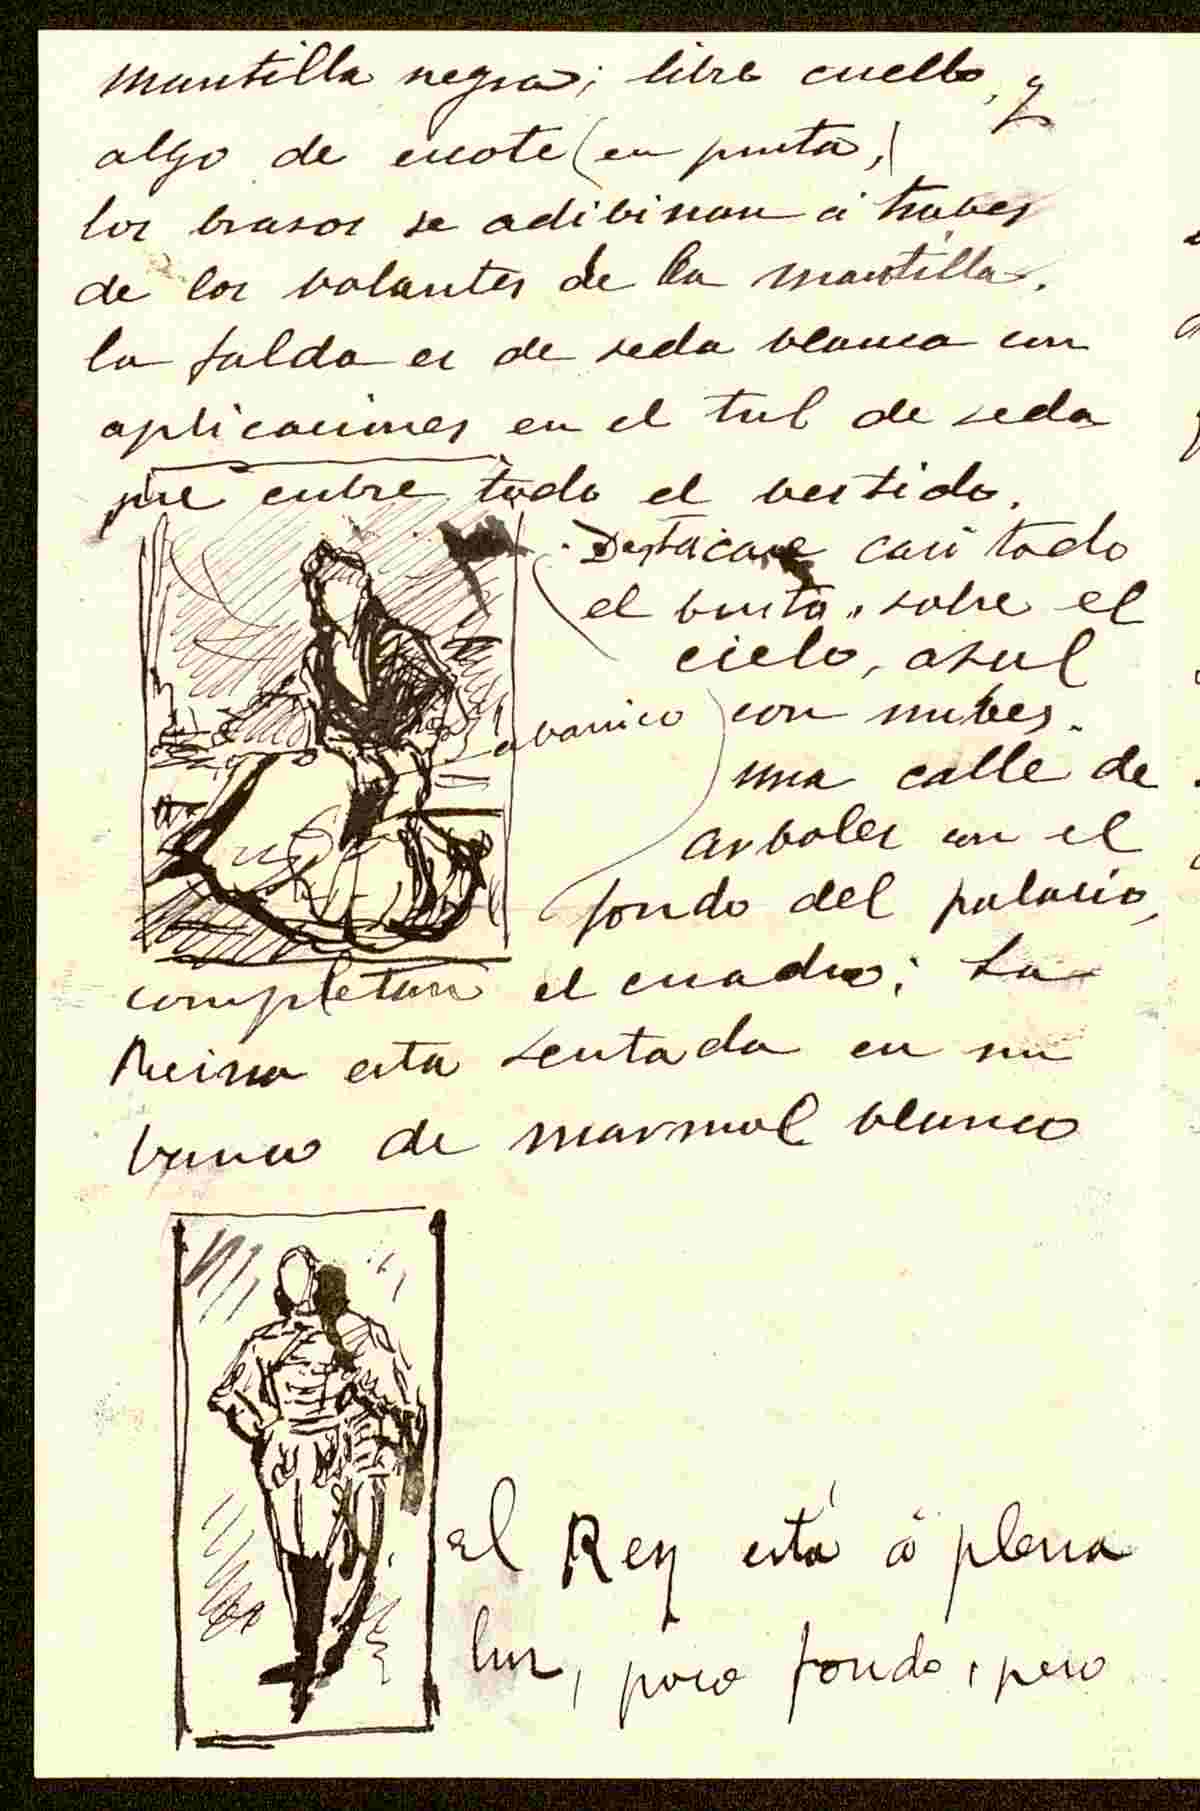 mantilla negra; libre cuello, y
algo de escote (en punta,)
los brasos se adibinan á trabes
de los volantes de la mantilla.
la falda es de seda blanca con
aplicaciones en el tul de seda
que cubre todo el vestido.
Destacase casi todo
el busto, sobre el
cielo, asul
abanico
con nubes.
una calle de
arboles con el
fondo del palacio,
completan el cuadro; La
Reina esta sentada en un
banco de marmol blanco
El Rey está á plena
luz, poco fondo, pero